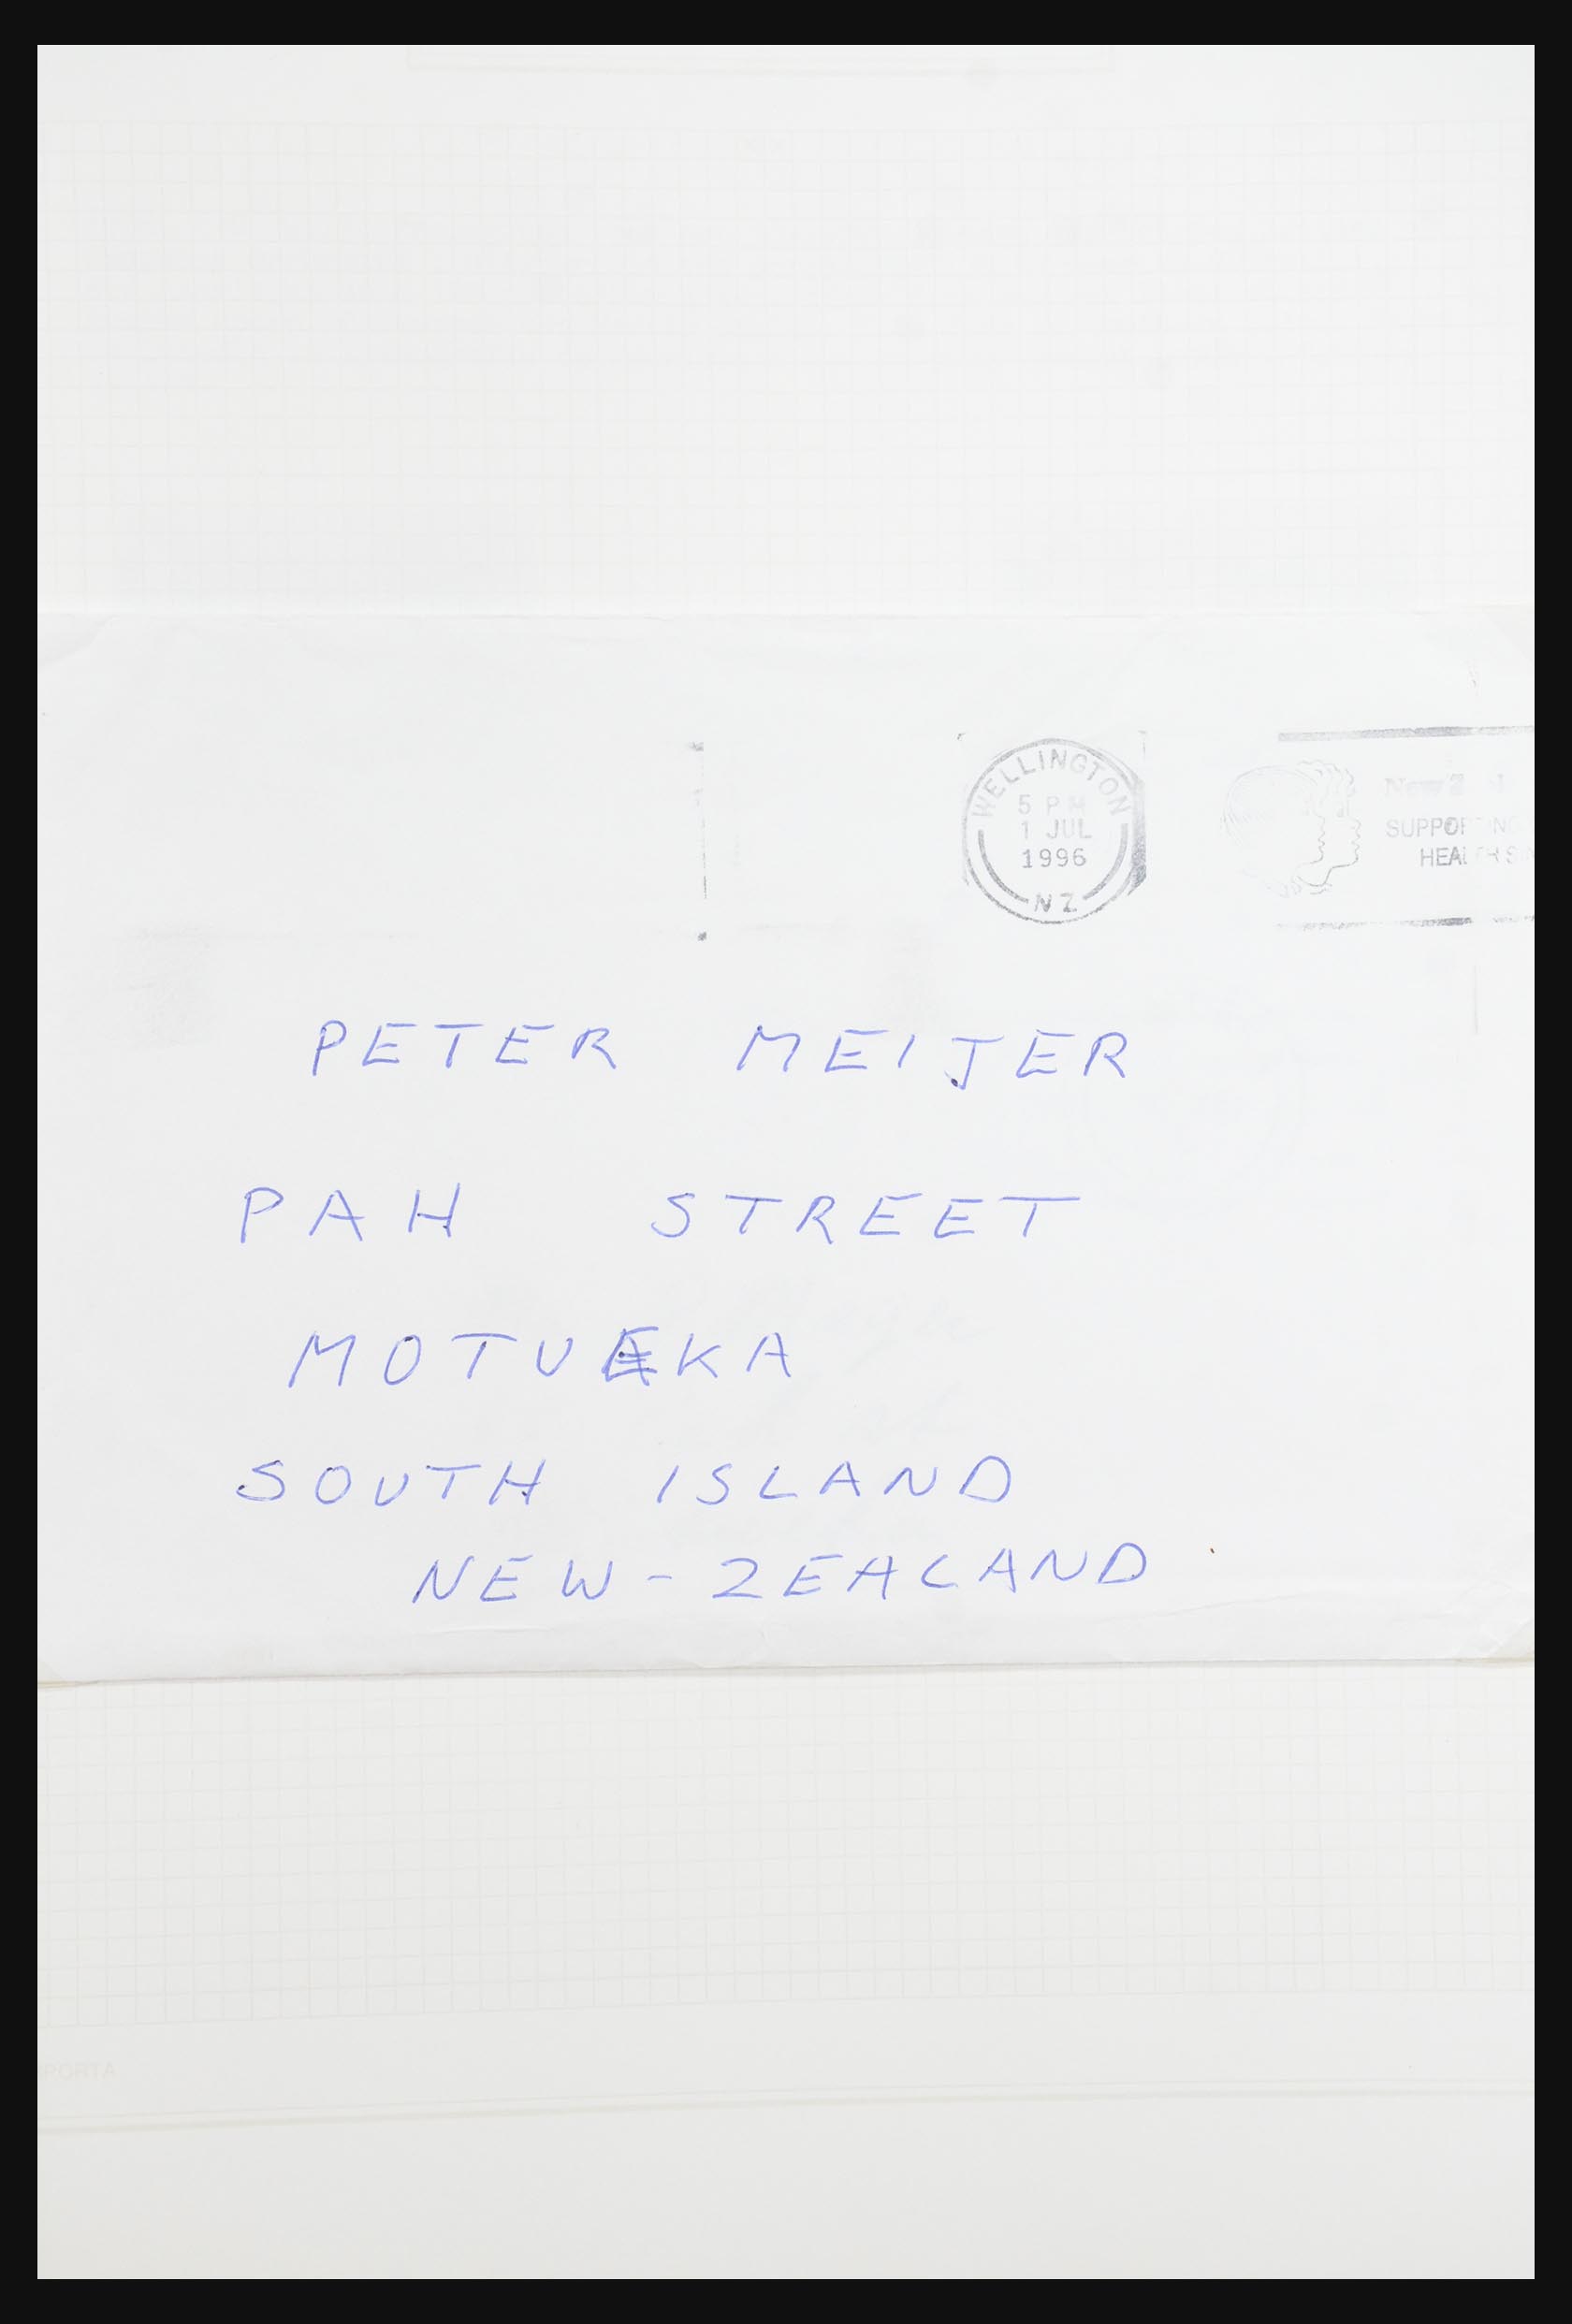 WELLINGTON
5 PM
1 JUL
1996
NZ
SUPPORTING
PETER MEIJER
PAH STREET
MOTUEKA
SOUTH ISLAND
NEW-ZEALAND
PORTA